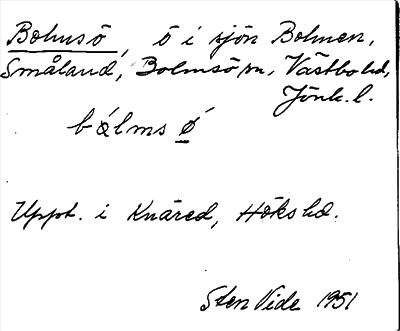 Bolmsö, ö i sjön Bolmen,
Småland, Bolmsö sn, Västbo hd,
Jönk. l.
bålms ö́
Uppt. i Knäred, Höks hd.
Sten Vide 1951